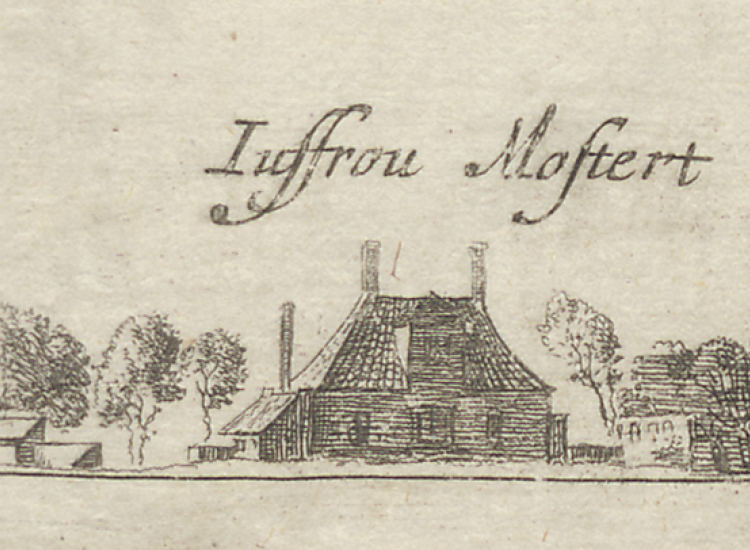 Iuffrou Moſtert